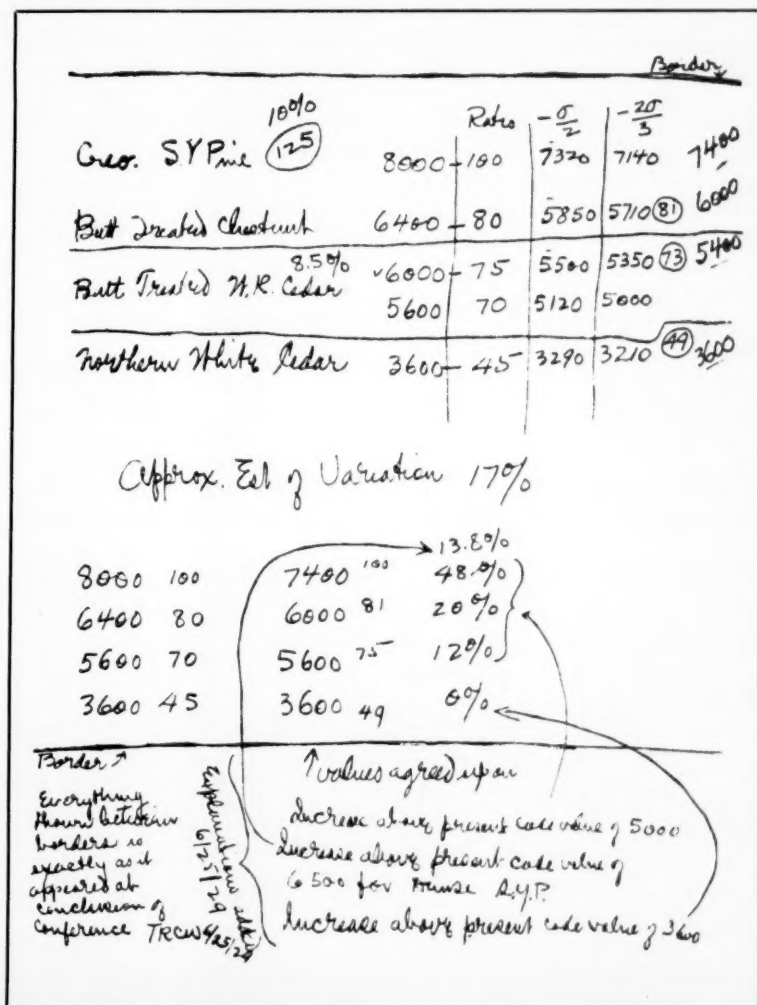 Border
10%
Ratio -σ/2 -2σ/3
Creo. S.Y Pine 125 8000 - 100 7320 7140 7400
Butt Treated Chestnut 6400 - 80 5850 5710 81 6000
Butt Treated W.R. Cedar 8.5% 6000 - 75 5500 5350 73 5400
5600 70 5120 5000
Northern White Cedar 3600 - 45 3290 3210 49 3600
Approx. Est of Variation 17%
13.8%
8000 100 7400 100 48%
6400 80 6000 81 20%
5600 70 5600 75 12%
3600 45 3600 49 0%
Border ↑
Everything
shown between
borders is
exactly as it
appeared at
conclusion of
conference TRCW 6/25/29
Explanations added
6/25/29
↑ values agreed upon
Increase above present code value of 5000
Increase above present code value of
6500 for dense S.Y.P.
Increase above present code value of 3600